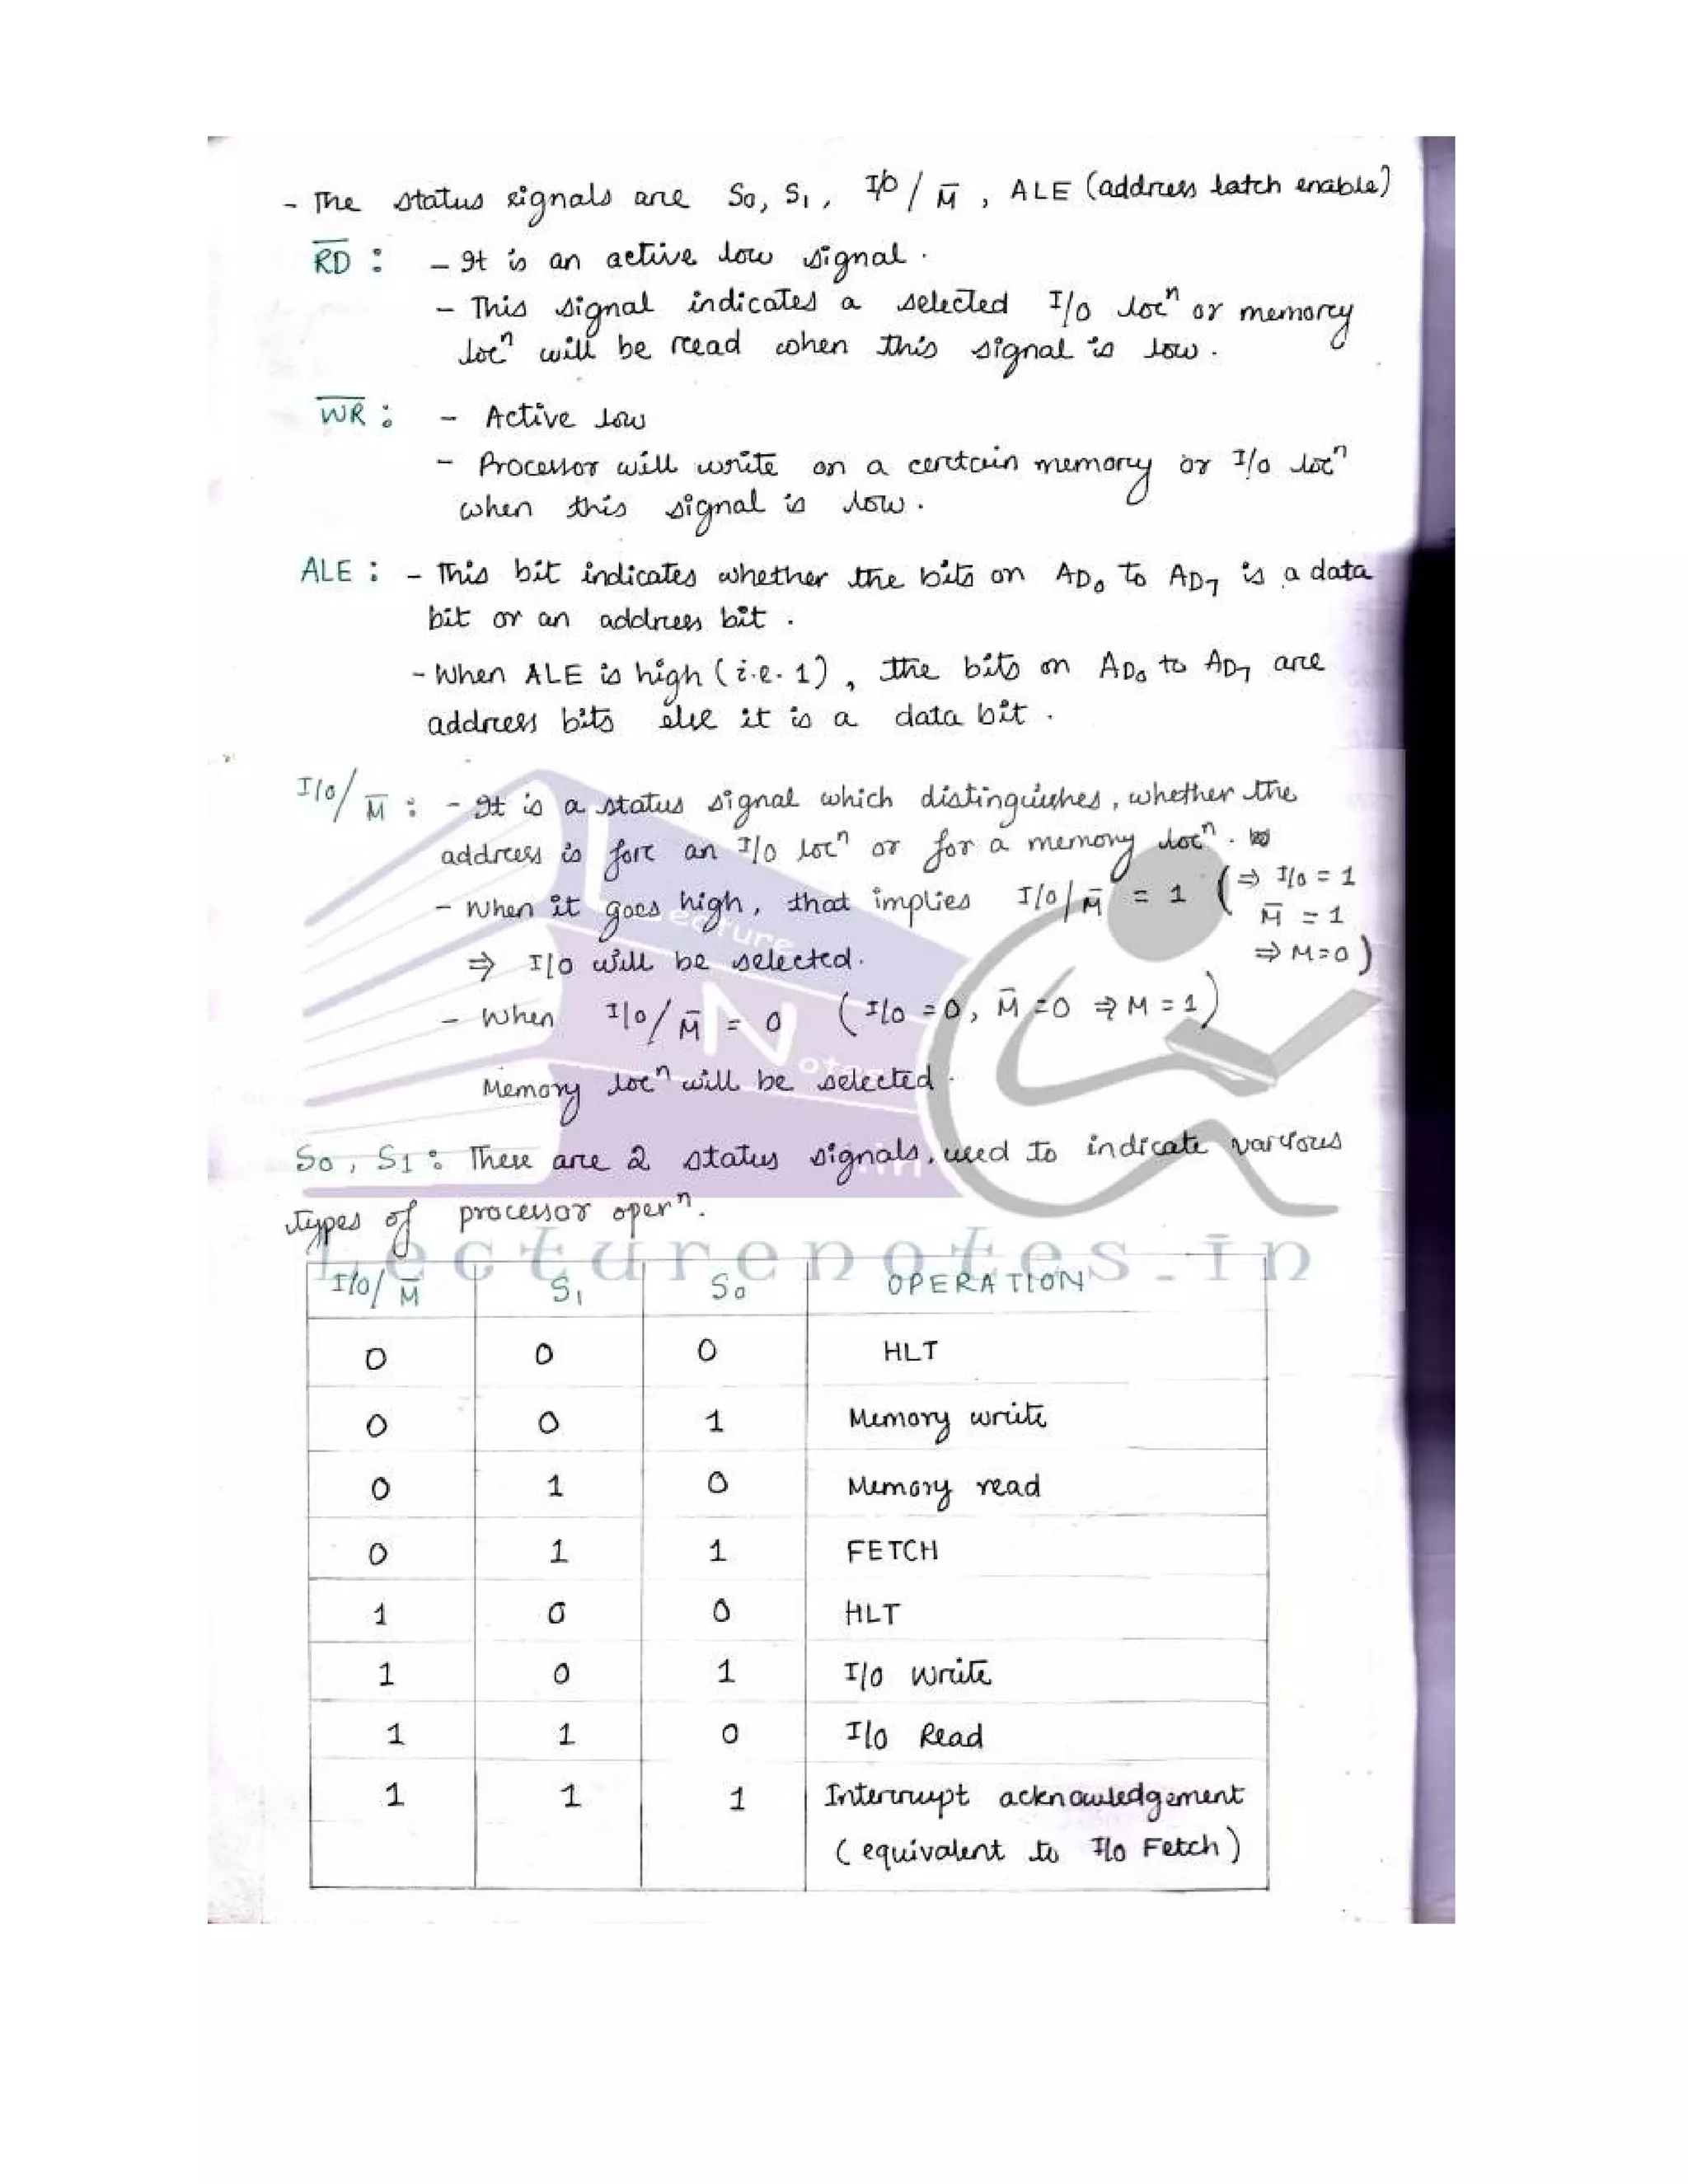 - The status signals are S0, S1, I/O / M̅, ALE (address latch enable)
R̅D̅ : - It is an active low signal.
- This signal indicates a selected I/O locⁿ or memory
locⁿ will be read when this signal is low.
W̅R̅ : - Active low
- Processor will write on a certain memory or I/O locⁿ
when this signal is low.
ALE : - This bit indicates whether the bits on AD0 to AD7 is a data
bit or an address bit.
- When ALE is high (i.e. 1), the bits on AD0 to AD7 are
address bits else it is a data bit.
I/O/M̅ : - It is a status signal which distinguishes, whether the
address is for an I/O locⁿ or for a memory locⁿ.
- When it goes high, that implies I/O/M̅ = 1 (⇒ I/O = 1
M̅ = 1
⇒ I/O will be selected. ⇒ M=0)
- When I/O/M̅ = 0 (I/O = 0, M̅ = 0 ⇒ M = 1)
Memory locⁿ will be selected.
S0, S1 : These are 2 status signals, used to indicate various
types of processor operⁿ.
I/O/M̅ S1 S0 OPERATION
0 0 0 HLT
0 0 1 Memory write
0 1 0 Memory read
0 1 1 FETCH
1 0 0 HLT
1 0 1 I/O Write
1 1 0 I/O Read
1 1 1 Interrupt acknowledgement
(equivalent to I/O Fetch)
Lecture
Notes
.in
Lecturenotes.in